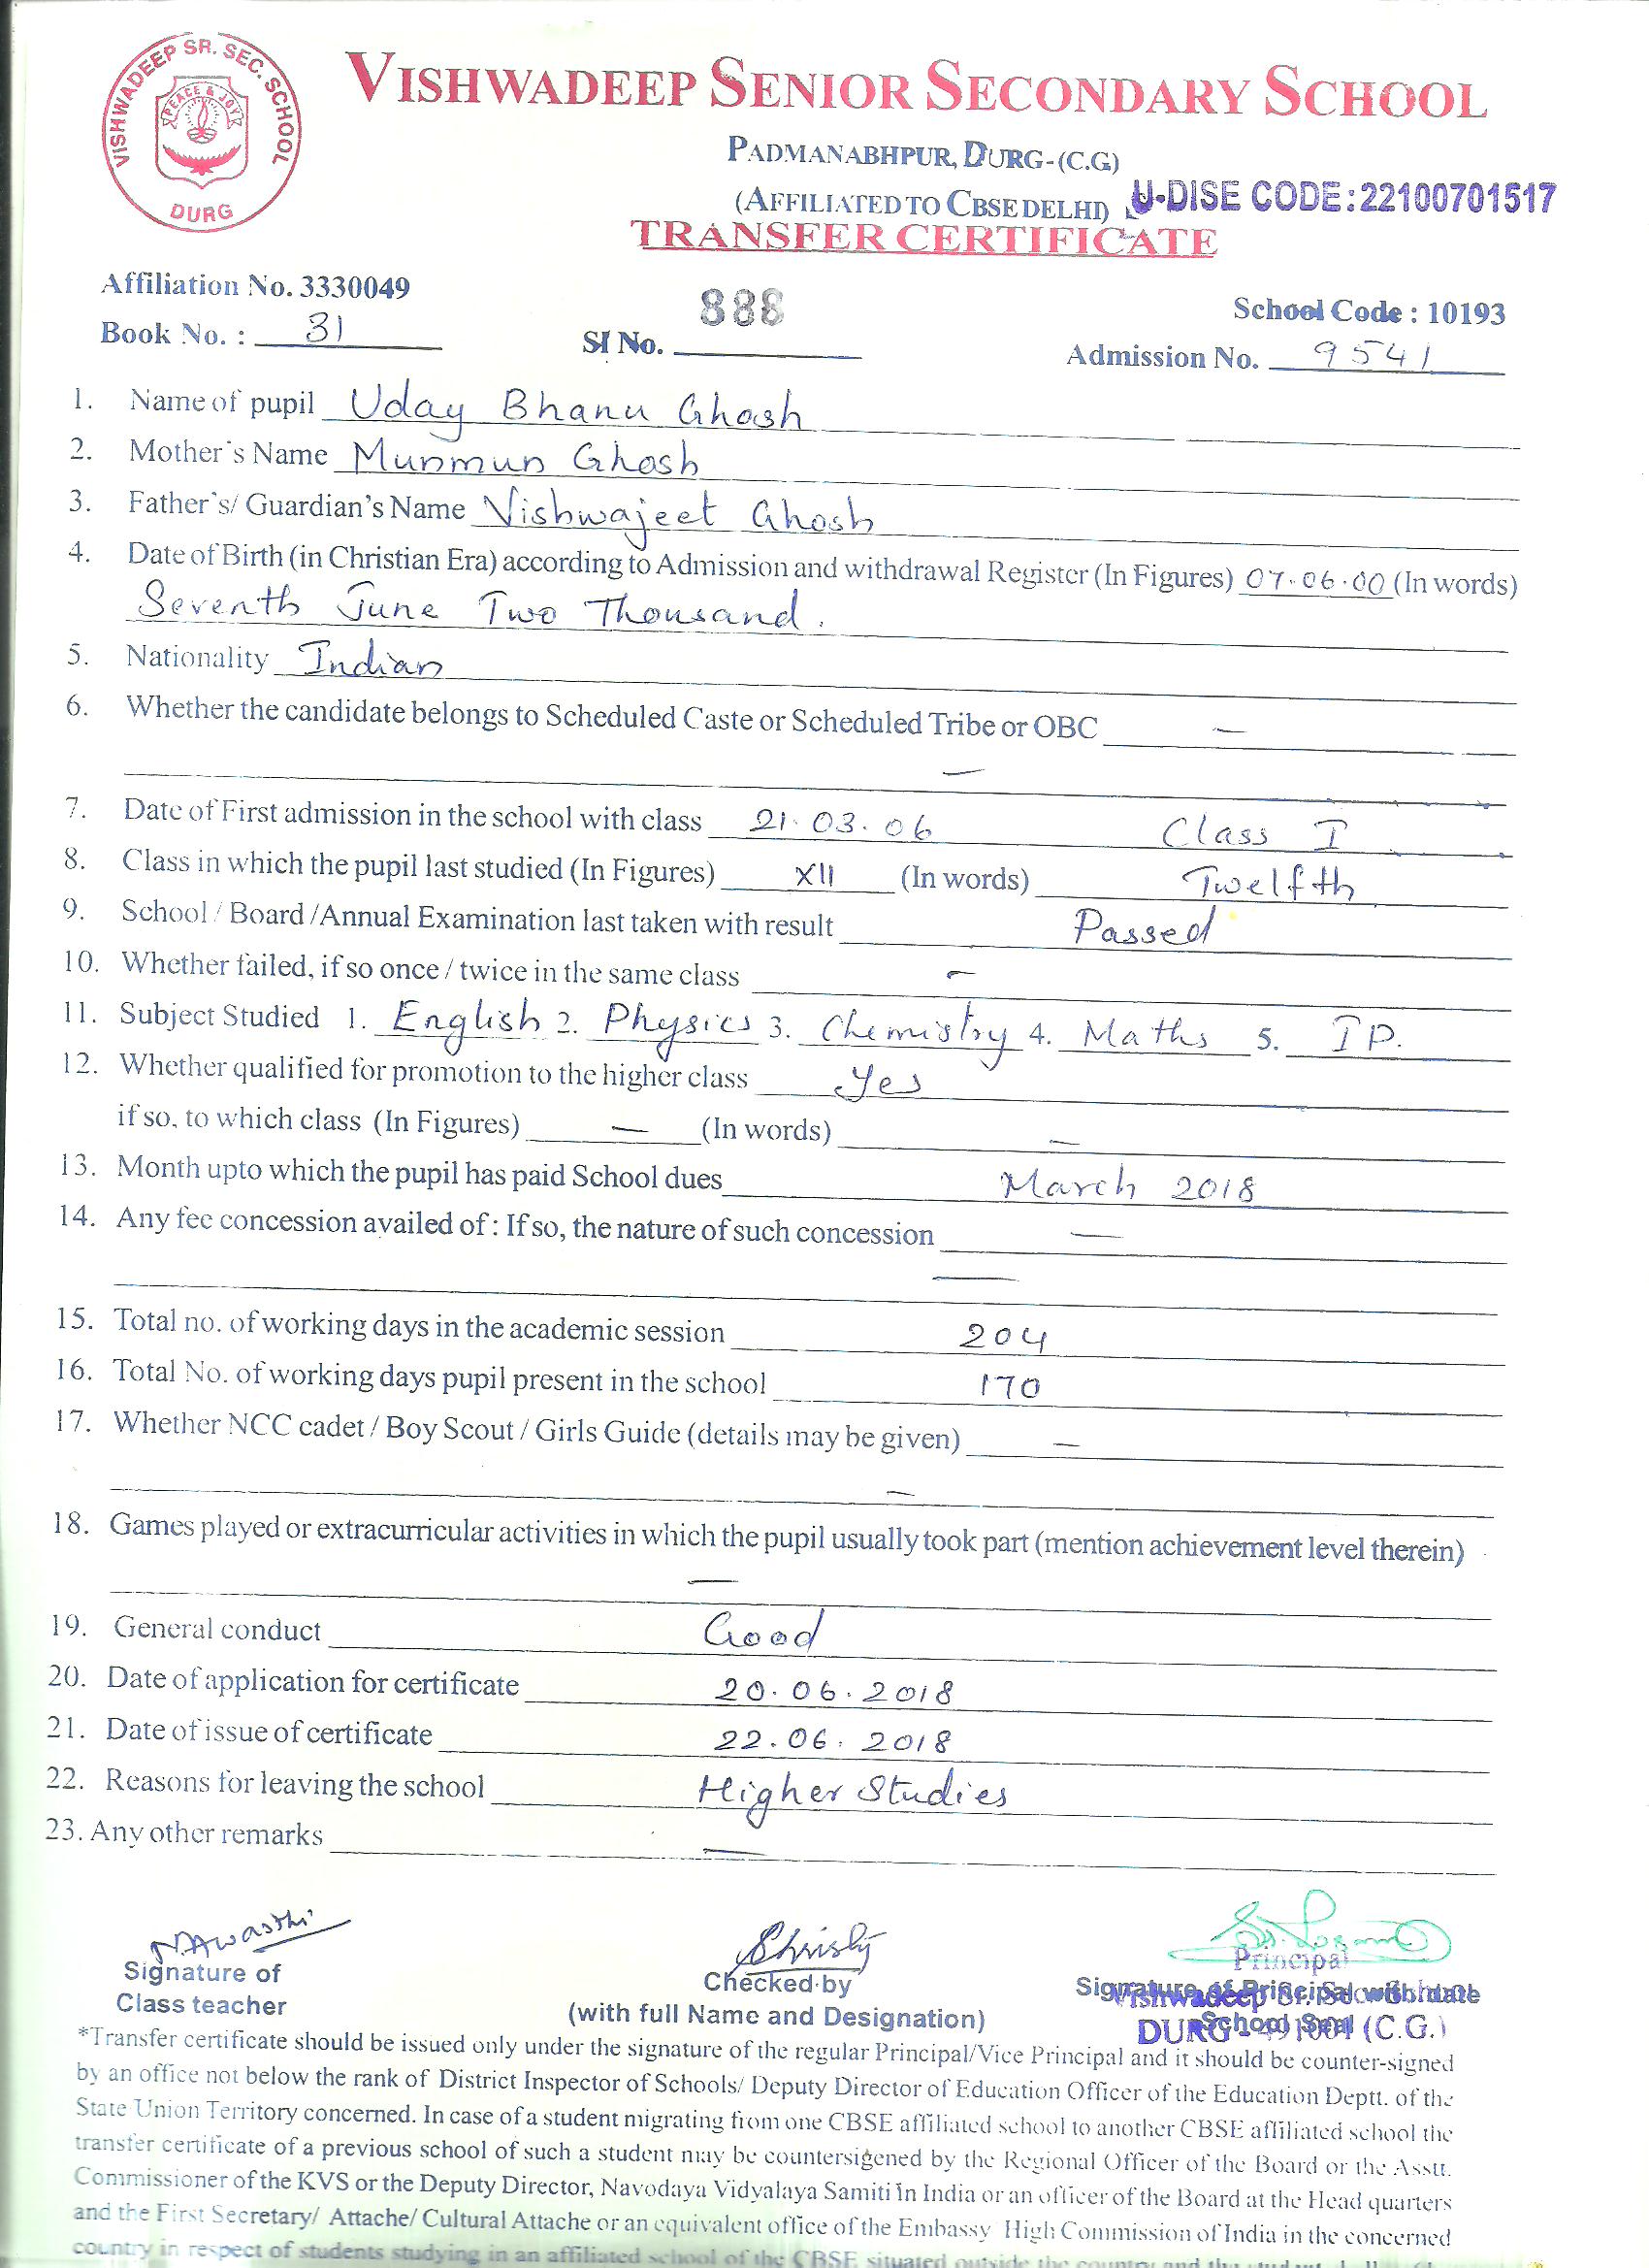 VISHWADEEP SR. SEC. SCHOOL
PEACE & JOY
DURG
VISHWADEEP SENIOR SECONDARY SCHOOL
PADMANABHPUR, DURG-(C.G)
(AFFILIATED TO CBSE DELHI)
U-DISE CODE:22100701517
TRANSFER CERTIFICATE
Affiliation No. 3330049
888
School Code : 10193
Book No. : 31
Sl No.
Admission No. 9541
1. Name of pupil Uday Bhanu Ghosh
2. Mother's Name Munmun Ghosh
3. Father's/ Guardian's Name Vishwajeet Ghosh
4. Date of Birth (in Christian Era) according to Admission and withdrawal Register (In Figures) 07.06.00 (In words)
Seventh June Two Thousand.
5. Nationality Indian
6. Whether the candidate belongs to Scheduled Caste or Scheduled Tribe or OBC —
—
7. Date of First admission in the school with class 21.03.06 Class I
8. Class in which the pupil last studied (In Figures) XII (In words) Twelfth
9. School / Board /Annual Examination last taken with result Passed
10. Whether failed, if so once / twice in the same class —
11. Subject Studied 1. English 2. Physics 3. Chemistry 4. Maths 5. IP.
12. Whether qualified for promotion to the higher class Yes
if so, to which class (In Figures) — (In words) —
13. Month upto which the pupil has paid School dues March 2018
14. Any fee concession availed of : If so, the nature of such concession —
—
15. Total no. of working days in the academic session 204
16. Total No. of working days pupil present in the school 170
17. Whether NCC cadet / Boy Scout / Girls Guide (details may be given) —
—
18. Games played or extracurricular activities in which the pupil usually took part (mention achievement level therein)
—
19. General conduct Good
20. Date of application for certificate 20.06.2018
21. Date of issue of certificate 22.06.2018
22. Reasons for leaving the school Higher Studies
23. Any other remarks —
N.Awasthi
Christy
Principal
Signature of
Class teacher
Checked by
(with full Name and Designation)
Signature of Principal with date
School Seal
Vishwadeep Sr. Sec. School
DURG - 491001 (C.G.)
*Transfer certificate should be issued only under the signature of the regular Principal/Vice Principal and it should be counter-signed
by an office not below the rank of District Inspector of Schools/ Deputy Director of Education Officer of the Education Deptt. of the
State Union Territory concerned. In case of a student migrating from one CBSE affiliated school to another CBSE affiliated school the
transfer certificate of a previous school of such a student may be countersigened by the Regional Officer of the Board or the Asstt.
Commissioner of the KVS or the Deputy Director, Navodaya Vidyalaya Samiti in India or an officer of the Board at the Head quarters
and the First Secretary/ Attache/ Cultural Attache or an equivalent office of the Embassy High Commission of India in the concerned
country in respect of students studying in an affiliated school of the CBSE situated outside the country and the